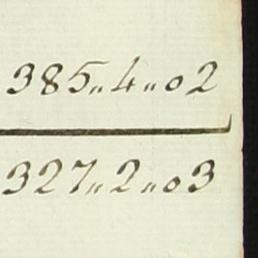 385,,4,,02
327,,2,,03